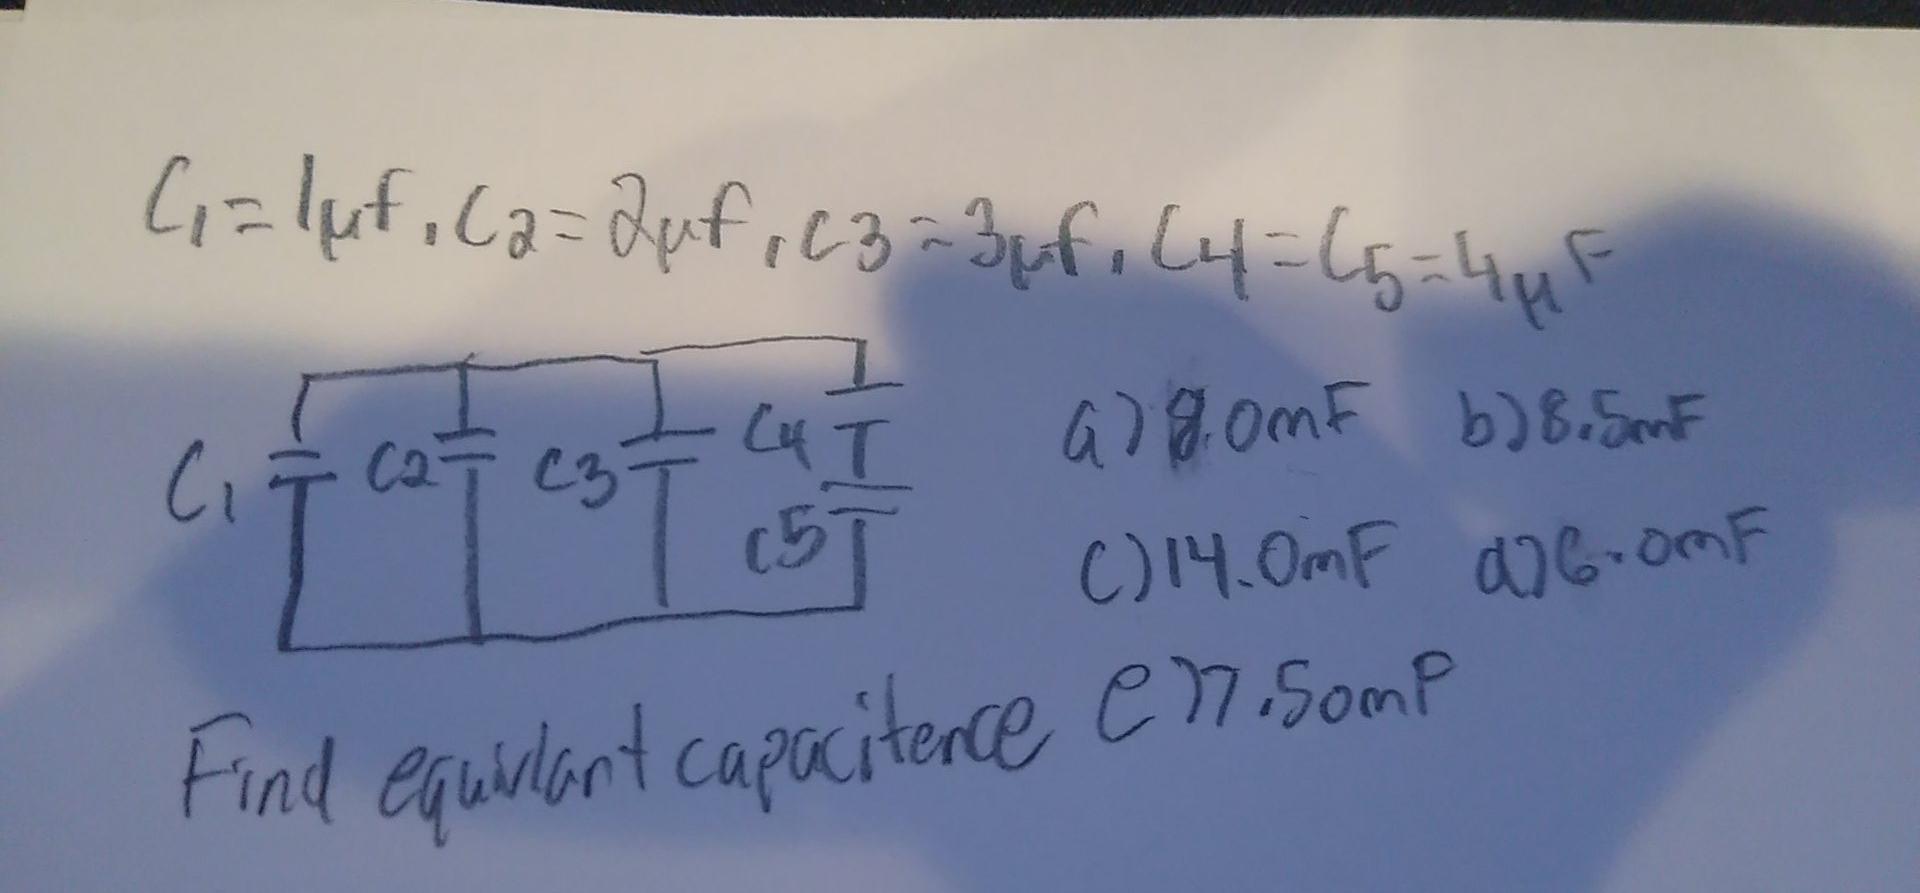 C1=1μf, C2=2μf, C3=3μf, C4=C5=4μF
C1 C2 C3 C4
C5
a) 8.0mF b) 8.5mF
c) 14.0mF d) 6.0mF
Find equivlant capacitence e) 7.50mF